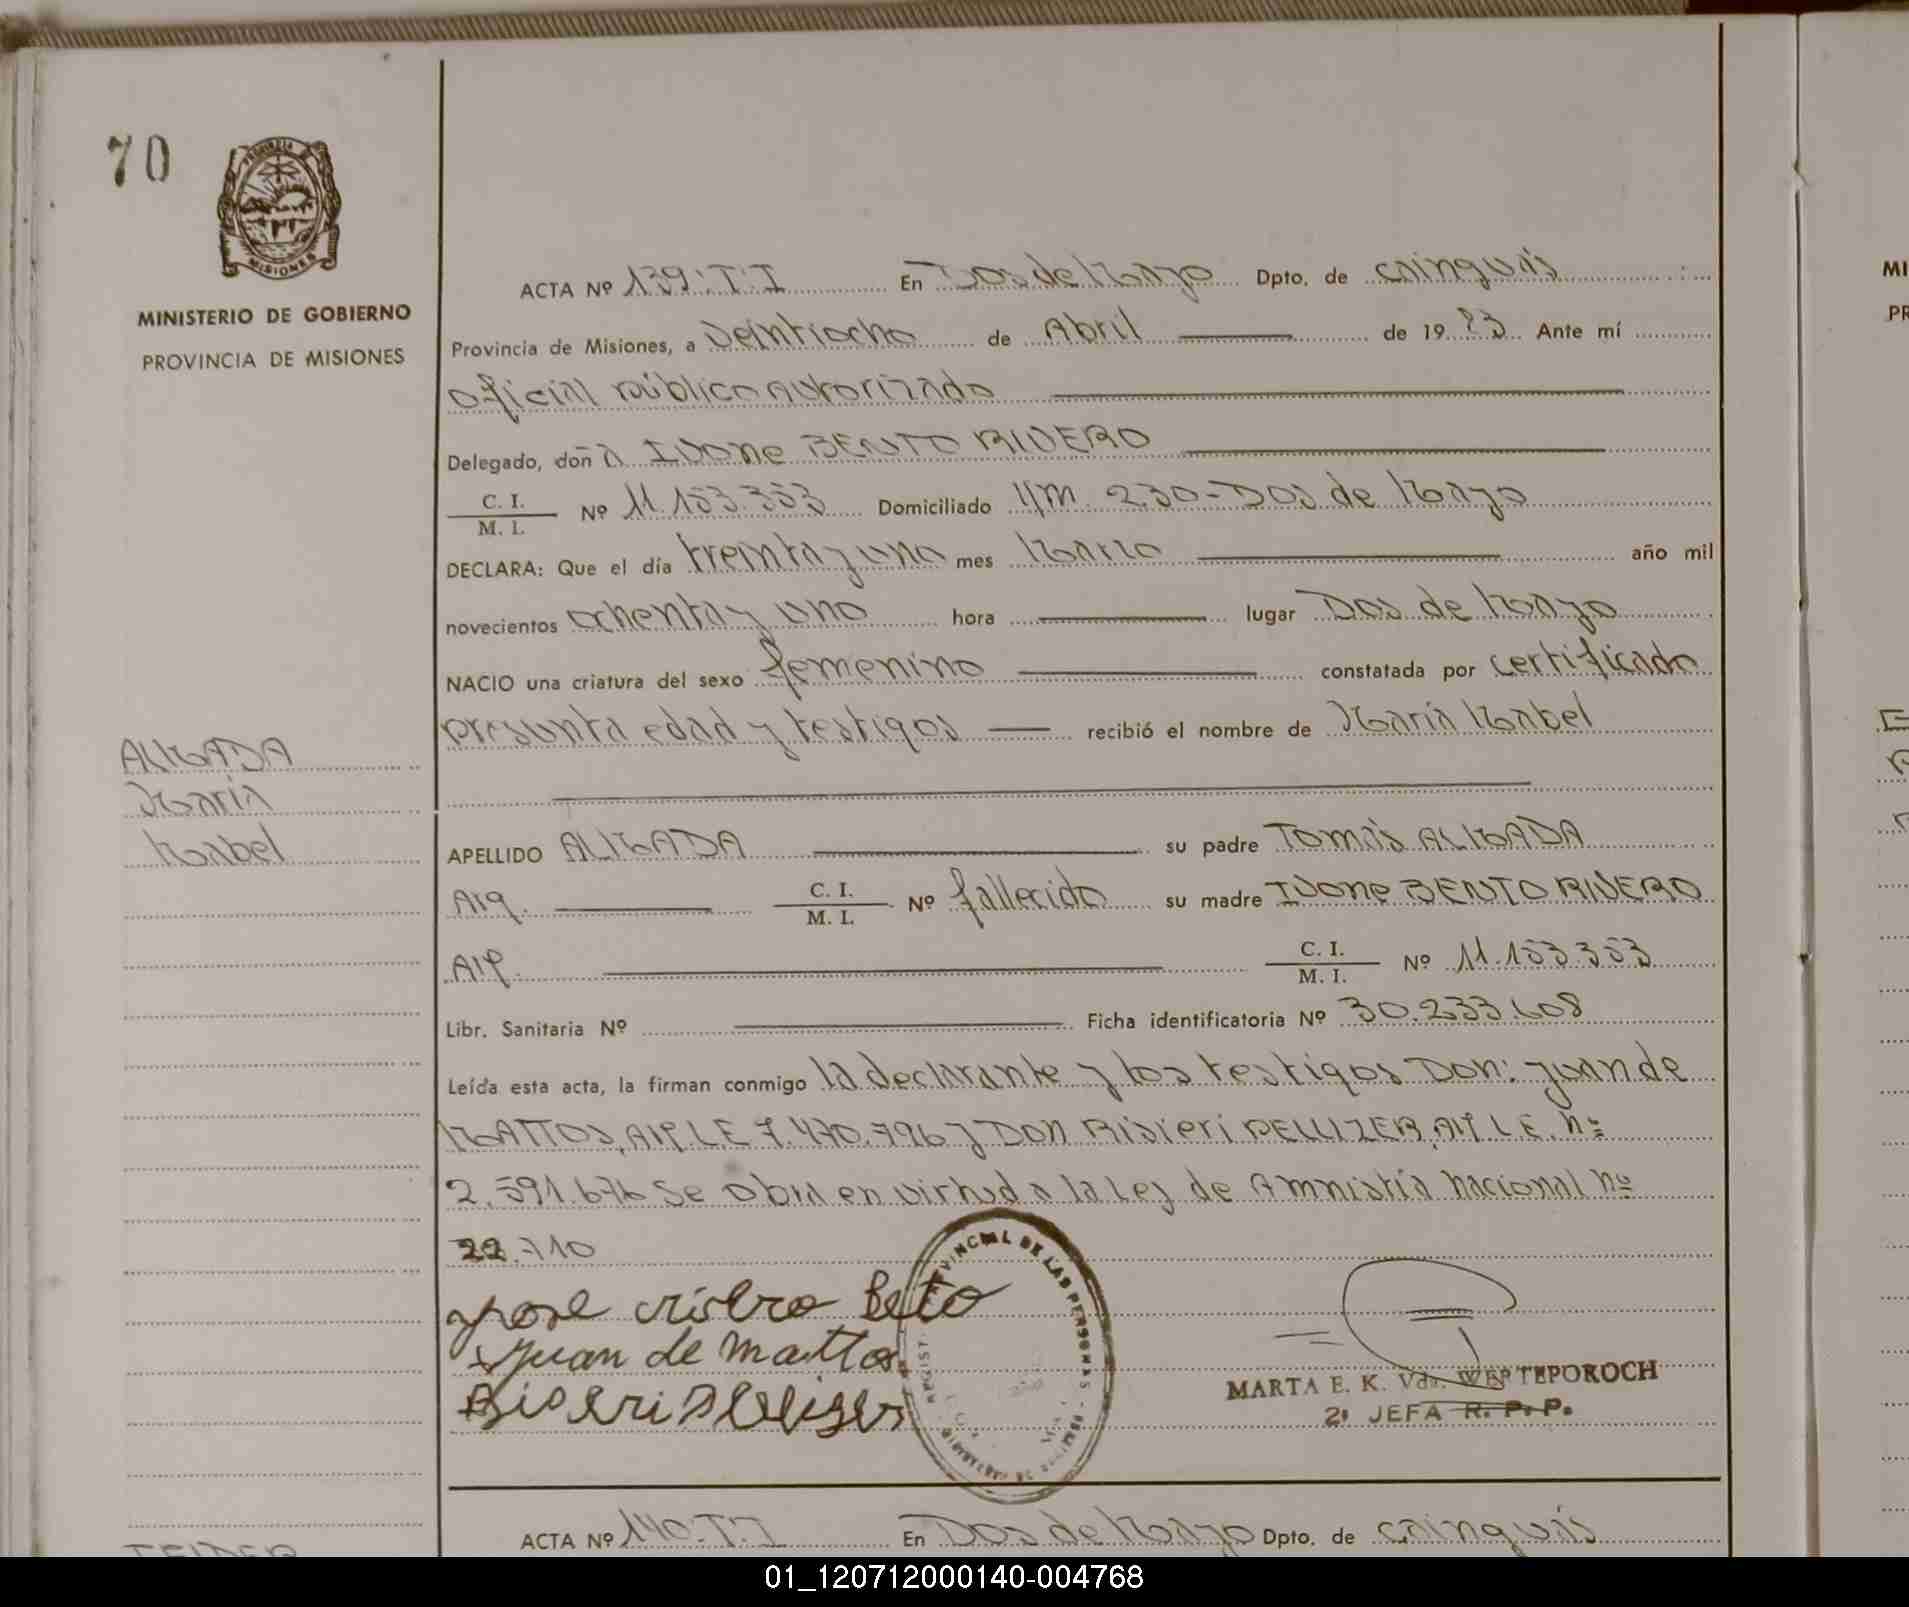 70
PROVINCIA
MISIONES
MINISTERIO DE GOBIERNO
PROVINCIA DE MISIONES
ACTA Nº 139:T:I En Dos de Mayo Dpto. de Cainguás
Provincia de Misiones, a Veintiocho de Abril de 19 83 Ante mí
oficial público autorizado
Delegado, doña Ivone BENTO RIVERO
C. I.
M. I. Nº 11.153.353 Domiciliado Km. 230-Dos de Mayo
DECLARA: Que el día treinta y uno mes Marzo año mil
novecientos ochenta y uno hora lugar Dos de Mayo
NACIO una criatura del sexo femenino constatada por certificado
presunta edad y testigos recibió el nombre de María Mabel
ALMADA
María
Mabel
APELLIDO ALMADA su padre Tomás ALMADA
Arg. C. I.
M. I. Nº fallecido su madre Ivone BENTO RIVERO
Arg. C. I.
M. I. Nº 11.153.353
Libr. Sanitaria Nº Ficha identificatoria Nº 30.233.608
Leída esta acta, la firman conmigo la declarante y los testigos Don: Juan de
MATTOS, Arg. L.E 7.470.796 y Don Risieri PELLIZER, Arg. L.E. nº
2.591.676 Se obra en virtud a la Ley de Amnistía Nacional nº
22.710
Juan de Mattos
PROVINCIAL DE LAS PERSONAS
MARTA E. K. Vda. WERTEPOROCH
2ª JEFA R. P. P.
ACTA Nº 140:T:I En Dos de Mayo Dpto. de Cainguás
01_120712000140-004768